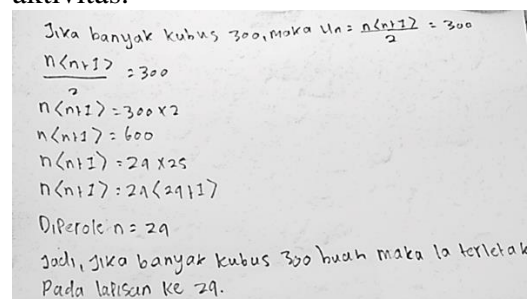 aktivitas.
Jika banyak kubus 300, maka Un = n(n+1)/2 = 300
n(n+1)/2 = 300
n(n+1) = 300 x 2
n(n+1) = 600
n(n+1) = 24 x 25
n(n+1) = 24(24+1)
Diperole n = 24
Jadi, Jika banyak kubus 300 buah maka Ia terletak
Pada lapisan ke 24.